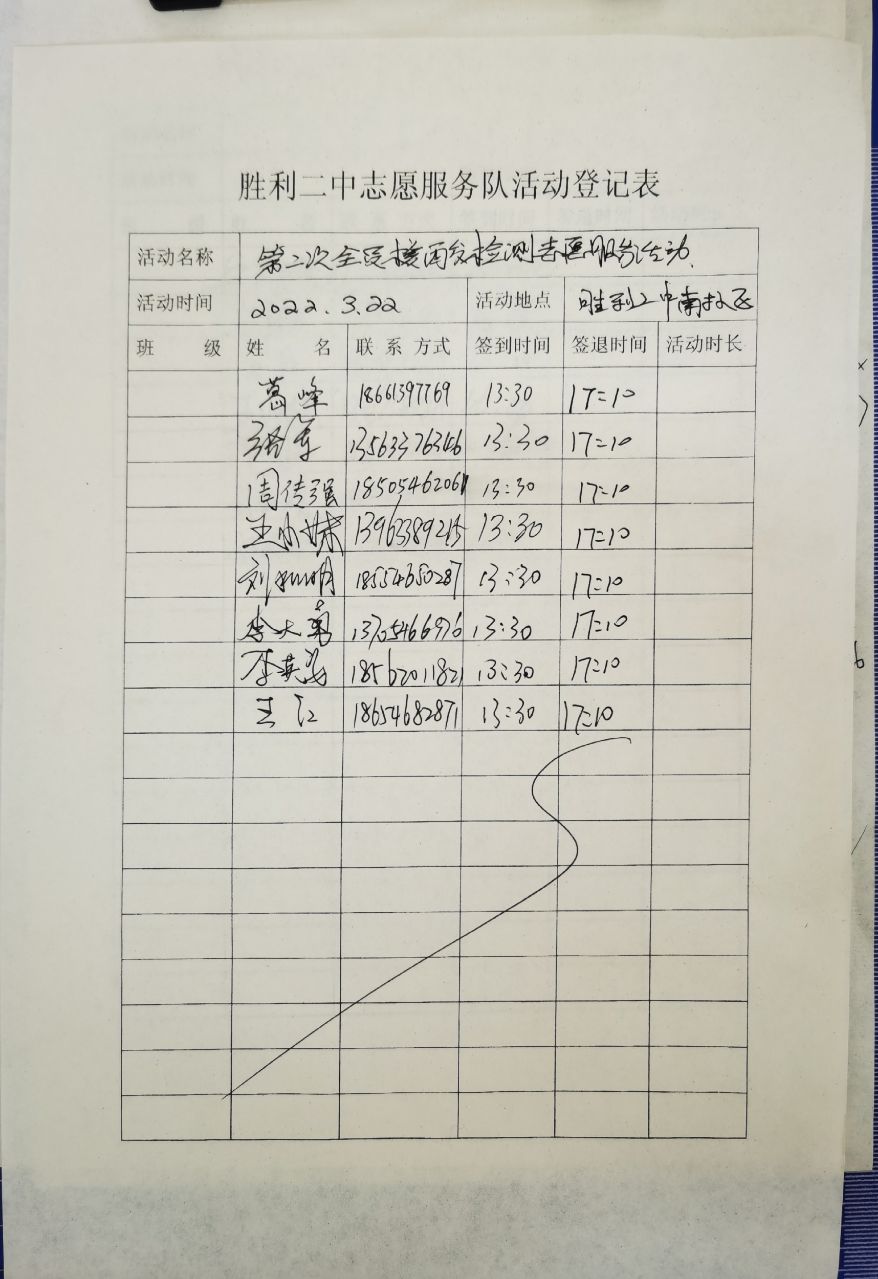 胜利二中志愿服务队活动登记表
活动名称 第二次全民核酸检测志愿服务活动
活动时间 2022.3.22 活动地点 胜利二中南校区
班 级 姓 名 联系方式 签到时间 签退时间 活动时长
葛峰 18661397769 13:30 17:10
13:30 17:10
周传强 18505462061 13:30 17:10
王小妹 13963389215 13:30 17:10
刘 明 18554650287 13:30 17:10
李大勇 13705466976 13:30 17:10
李英海 18562011821 13:30 17:10
王江 18654682871 13:30 17:10